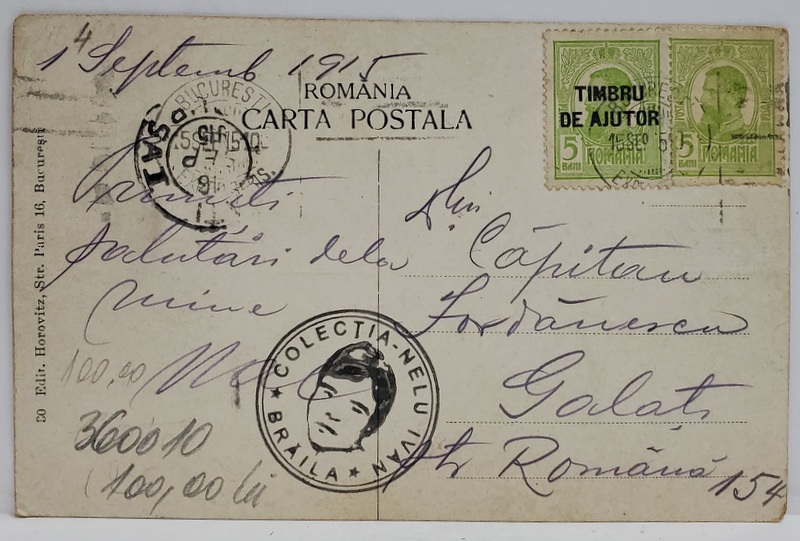 14 Septemb 1915
ROMÂNIA
CARTA POSTALA
BUCURESTI
IASI
TIMBRU
DE AJUTOR
5
BANI
ROMANIA
5
BANI
ROMANIA
15 SEP
Primiti
salutări dela
mine
Dlui
Căpitan
Iordănescu
Galați
str Română 154
30 Edit. Horovitz, Str. Paris 16, București
COLECȚIA-NELU IVAN
BRĂILA
100,00
360010
100,00 lei